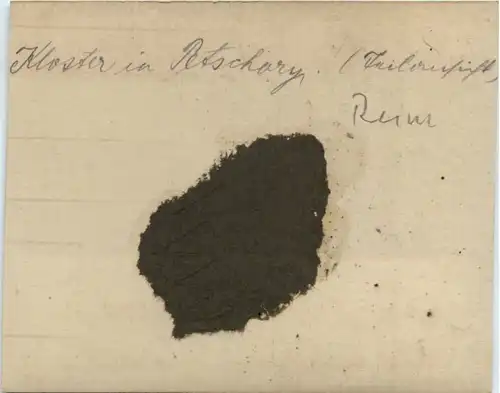 Kloster in Petschory. (Teilansicht)